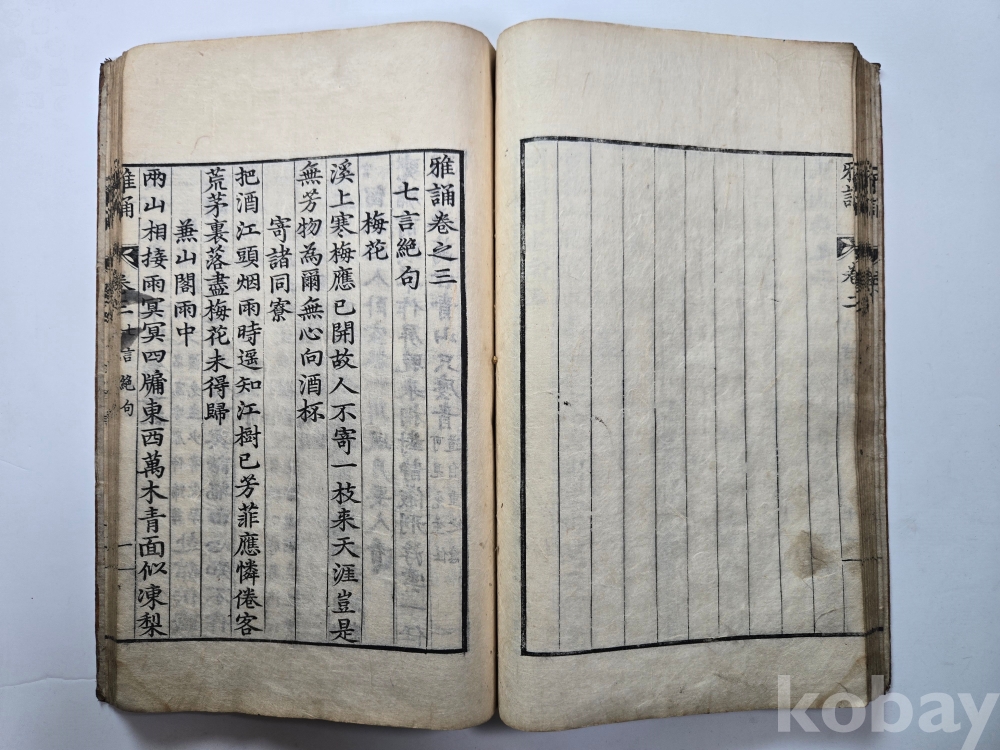 雅誦
卷二
雅誦卷之三
七言絶句
梅花
溪上寒梅應已開故人不寄一枝來天涯豈是
無芳物為爾無心向酒杯
寄諸同寮
把酒江頭烟雨時遥知江樹已芳菲應憐倦客
荒茅裏落盡梅花未得歸
兼山閣雨中
兩山相接雨冥冥四牖東西萬木青面似凍梨
雅誦
七言絶句
一
kobay